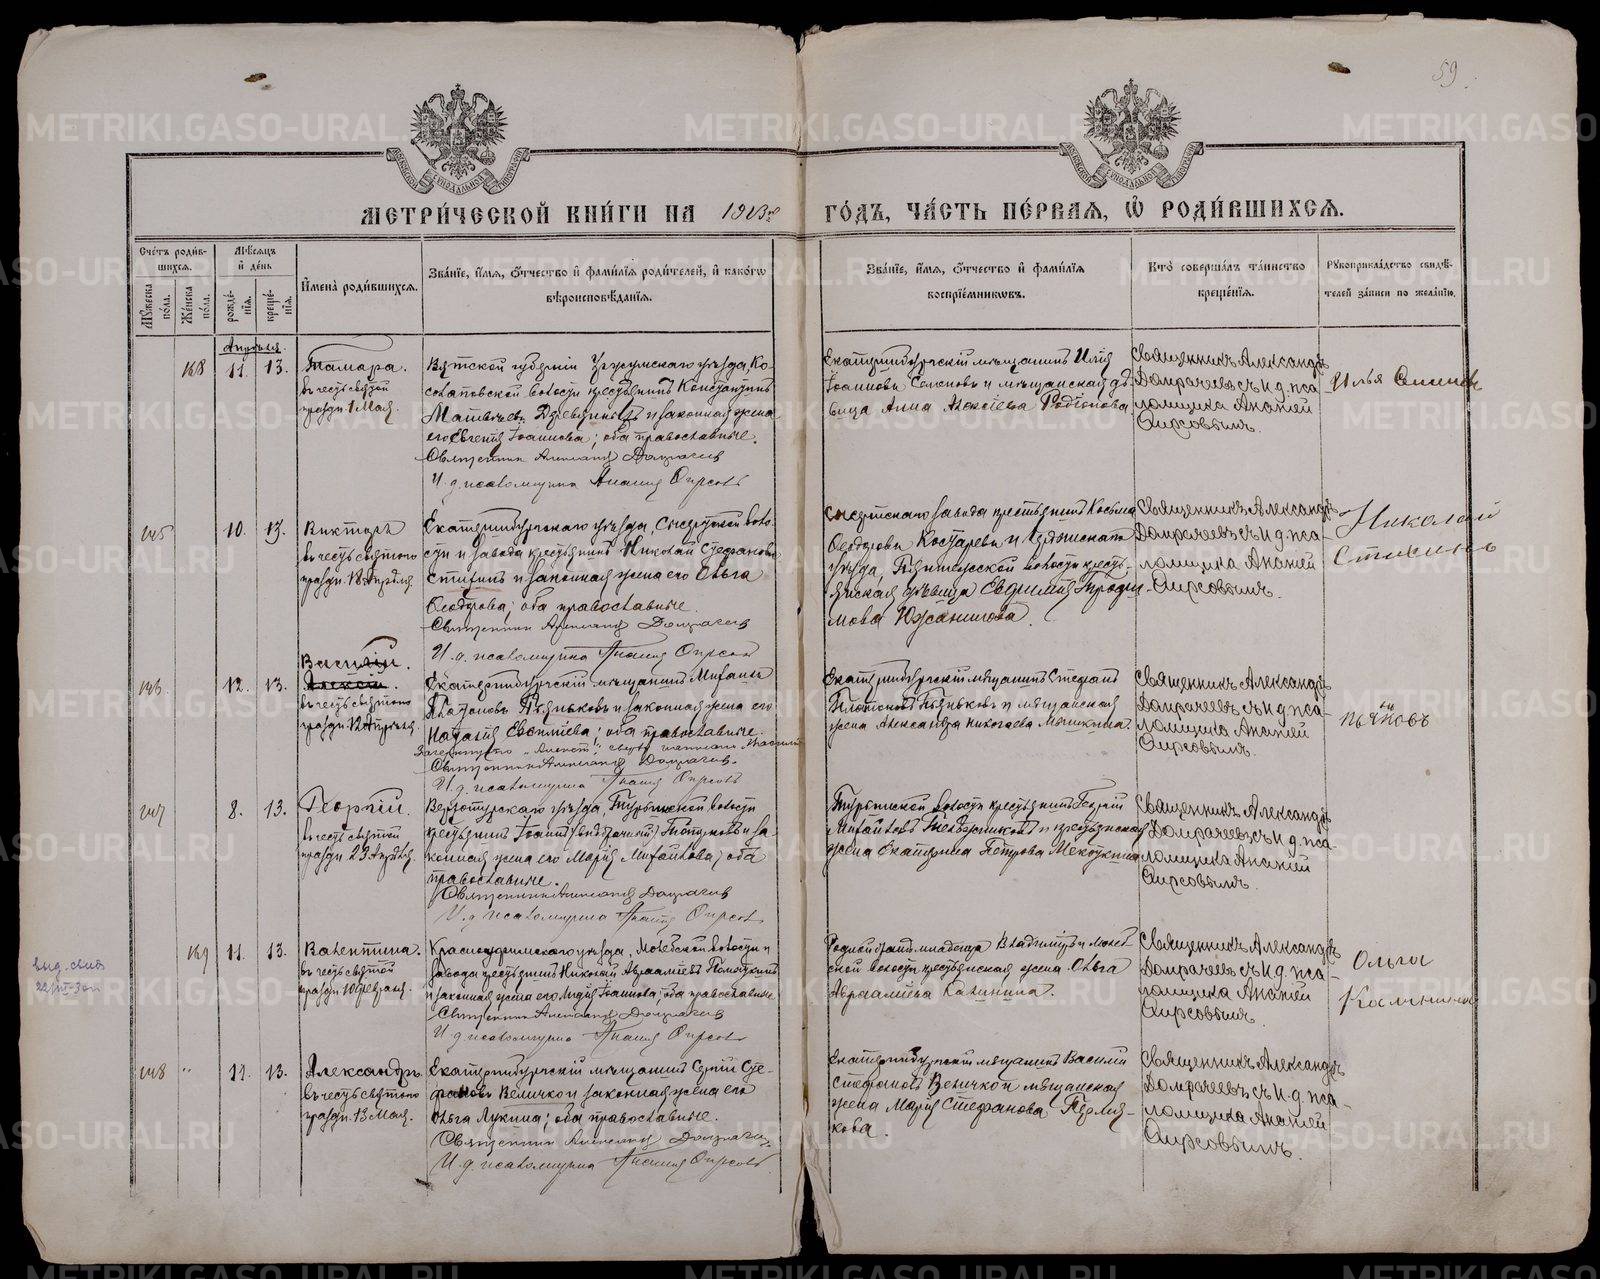 59
МЕТРИ́ЧЕСКОЙ КНИ́ГИ НА 1913й ГО́ДЪ, ЧА́СТЬ ПЕ́РВАЯ, Ѡ РОДИ́ВШИХСЯ.
Сче́тъ роди́вшихся.
Мѣ́сяцъ и҆ де́нь
Мꙋ́жеска по́ла.
Же́нска по́ла.
рожде́нїя.
креще́нїя.
И҆мена̀ роди́вшихся.
Зва́нїе, и҆́мя, ѻ҆́тчество и҆ фами́лїя роди́телей, и҆ како́гѡ вѣроисповѣ́данїя.
Зва́нїе, и҆́мя, ѻ҆́тчество и҆ фами́лїя воспрїе́мникѡвъ.
Кто̀ соверша́лъ та́инство креще́нїя.
Рꙋкоприкла́дство свидѣ́телей за́писи по жела́нїю.
Апрѣля.
168
11.
13.
Тамара.
въ честь святой
праздн. 1 Мая.
Вятской губерніи Уржумскаго уѣзда, Ко-
волости крестьянинъ Константинъ
Матвѣевъ и законная жена
его Евгенія Іоаннова; оба православные.
Священникъ Александръ Домрачевъ
И. д. псаломщика Ананій Фирсовъ
Екатеринбургскій мѣщанинъ Илія
Іоанновъ Семеновъ и мѣщанская дѣ-
вица Анна Алексіева Родіонова.
Священникъ Александръ
Домрачевъ съ и. д. пса-
ломщика Ананіей
Фирсовымъ.
Илья Семенов
165
10.
13.
Викторъ
въ честь святого
праздн. 18 Апрѣля.
Екатеринбургскаго уѣзда, Сысертской воло-
сти и завода крестьянинъ Николай Стефановъ
и законная жена его Ольга
Ѳеодорова; оба православные.
Священникъ Александръ Домрачевъ
И. д. псаломщика Ананій Фирсовъ
Сысертскаго завода крестьянинъ Косьма
Ѳеодоровъ Костаревъ и
уѣзда, волости кресть-
янская дѣвица Евфимія
мова
Священникъ Александръ
Домрачевъ съ и. д. пса-
ломщика Ананіей
Фирсовымъ.
Николай
166.
12.
13.
Василій.
Алексій.
въ честь святого
праздн. 12 Апрѣля.
Екатеринбургскій мѣщанинъ Михаилъ
Платоновъ Пьянковъ и законная жена его
Наталія Евсигніева; оба православные.
Зачеркнуто „Алексій“, сверху написано Василій
Священникъ Александръ Домрачевъ.
И. д. псаломщика Ананій Фирсовъ
Екатеринбургскій мѣщанинъ Стефанъ
Платоновъ Пьянковъ и мѣщанская
жена Александра Николаева
Священникъ Александръ
Домрачевъ съ и. д. пса-
ломщика Ананіей
Фирсовымъ.
167
8.
13.
Георгій.
въ честь святой
праздн. 23 Апрѣля.
Верхотурскаго уѣзда, Туринской волости
крестьянинъ Іоаннъ и за-
конная жена его Марія Михайлова; оба
православные.
Священникъ Александръ Домрачевъ
И. д. псаломщика Ананій Фирсовъ
Туринской волости крестьянинъ Георгій
Михайловъ и крестьянская
жена Екатерина Петрова
Священникъ Александръ
Домрачевъ съ и. д. пса-
ломщика Ананіей
Фирсовымъ.
выд. свид.
169
11.
13.
Валентина.
въ честь святой
праздн. 10 февраля.
Красноуфимскаго уѣзда, Молебской волости и
завода крестьянинъ Николай Авраамовъ
и законная жена его Лидія Іоаннова; оба православные
Священникъ Александръ Домрачевъ
И. д. псаломщика Ананій Фирсовъ
Родной братъ младенца Владиміръ и Молеб-
ской волости крестьянская жена Ольга
Аврааміева Калинина.
Священникъ Александръ
Домрачевъ съ и. д. пса-
ломщика Ананіей
Фирсовымъ.
Ольга
Калинина
168
"
11.
13.
Александръ
въ честь святого
праздн. 13 Мая.
Екатеринбургскій мѣщанинъ Сергій Сте-
фановъ Величко и законная жена его
Ольга Лукина; оба православные.
Священникъ Александръ Домрачевъ
И. д. псаломщика Ананій Фирсовъ.
Екатеринбургскій мѣщанинъ Василій
Стефановъ Величко и мѣщанская
жена Марія Стефанова Пермя-
кова.
Священникъ Александръ
Домрачевъ съ и. д. пса-
ломщика Ананіей
Фирсовымъ.
METRIKI.GASO-URAL.RU